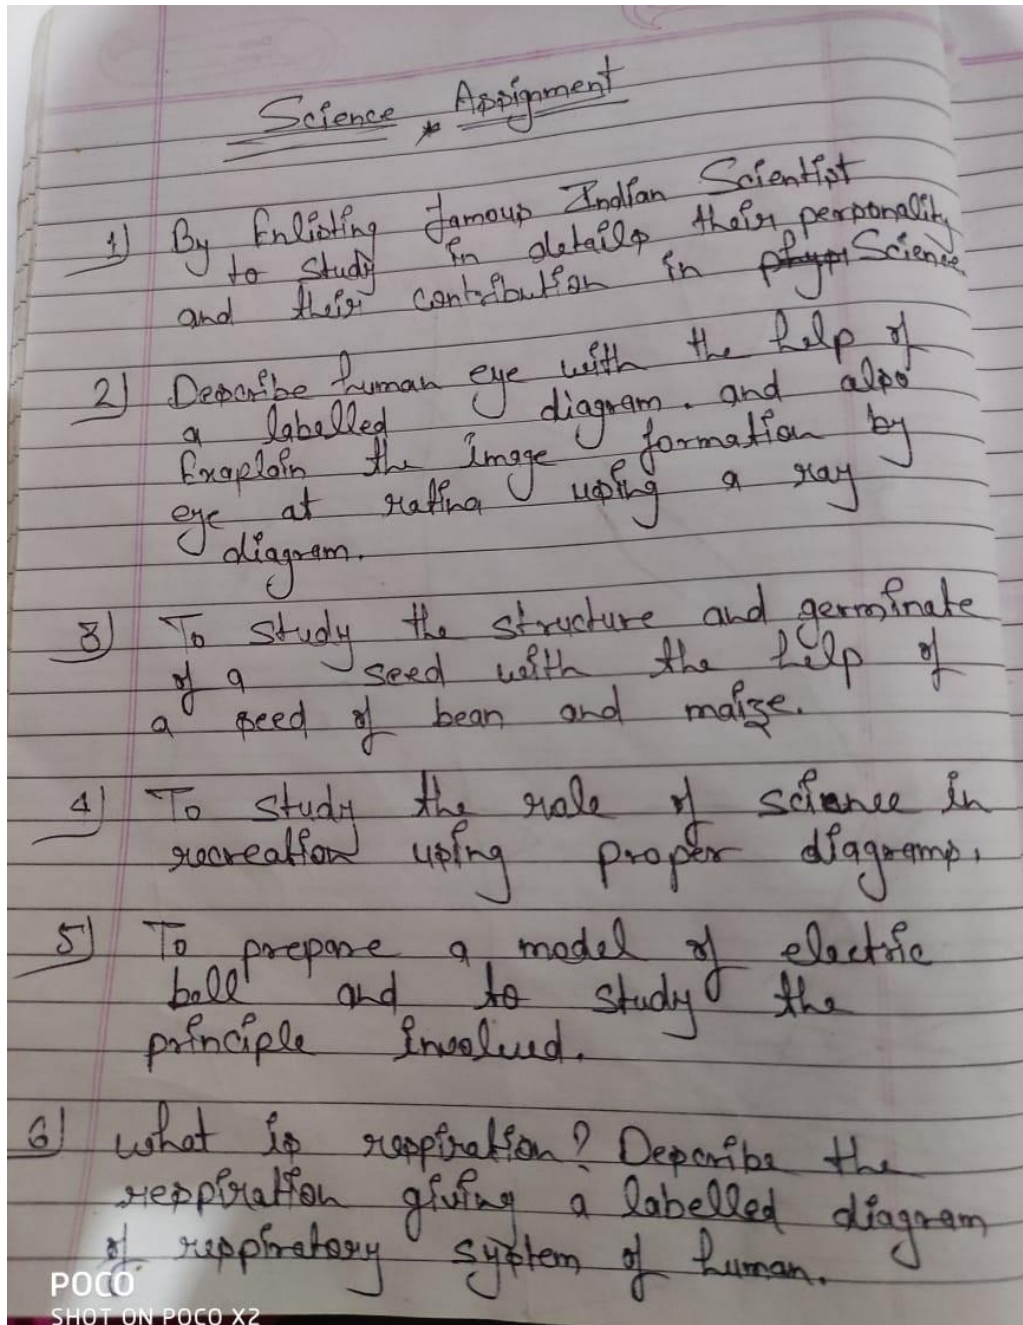 Science Assignment
1) By Enlisting famous Indian Scientist
to study in details their personality
and their contribution in Science
2) Describe human eye with the help of
a labelled diagram. and also
Exaplain the image formation by
eye at ratina using a ray
diagram.
3) To study the structure and germinate
of a seed with the help of
a seed of bean and maize.
4) To study the role of science in
recreation using proper diagrams.
5) To prepare a model of electric
bell and to study the
principle involved.
6) what is respiration? Describe the
respiration giving a labelled diagram
of respiratory system of human.
POCO
SHOT ON POCO X2